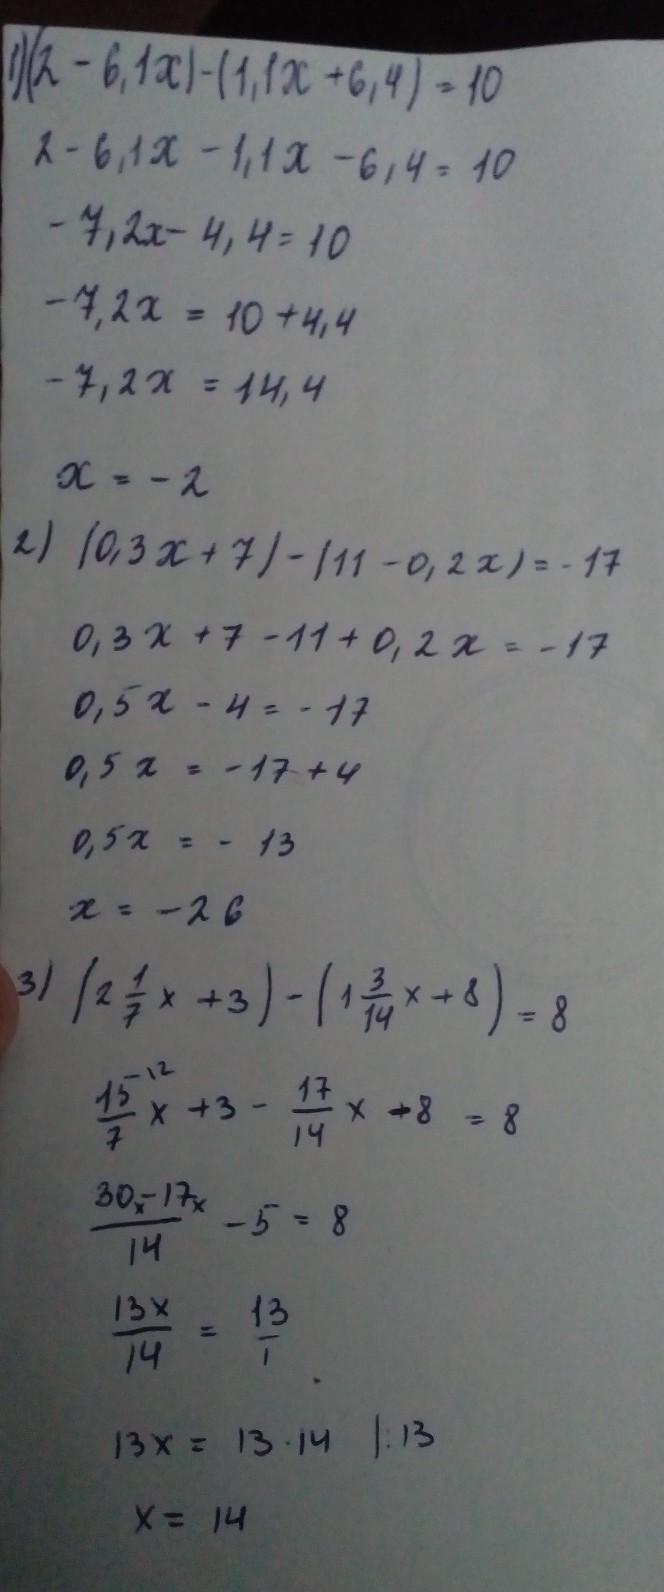 1) (2 - 6,1x) - (1,1x + 6,4) = 10
2 - 6,1x - 1,1x - 6,4 = 10
- 7,2x - 4,4 = 10
- 7,2x = 10 + 4,4
- 7,2x = 14,4
x = - 2
2) (0,3x + 7) - (11 - 0,2x) = - 17
0,3x + 7 - 11 + 0,2x = - 17
0,5x - 4 = - 17
0,5x = - 17 + 4
0,5x = - 13
x = - 26
3) (2 1/7 x + 3) - (1 3/14 x + 8) = 8
15/7 x + 3 - 17/14 x - 8 = 8
30x - 17x / 14 - 5 = 8
13x/14 = 13/1
13x = 13 · 14 |: 13
x = 14